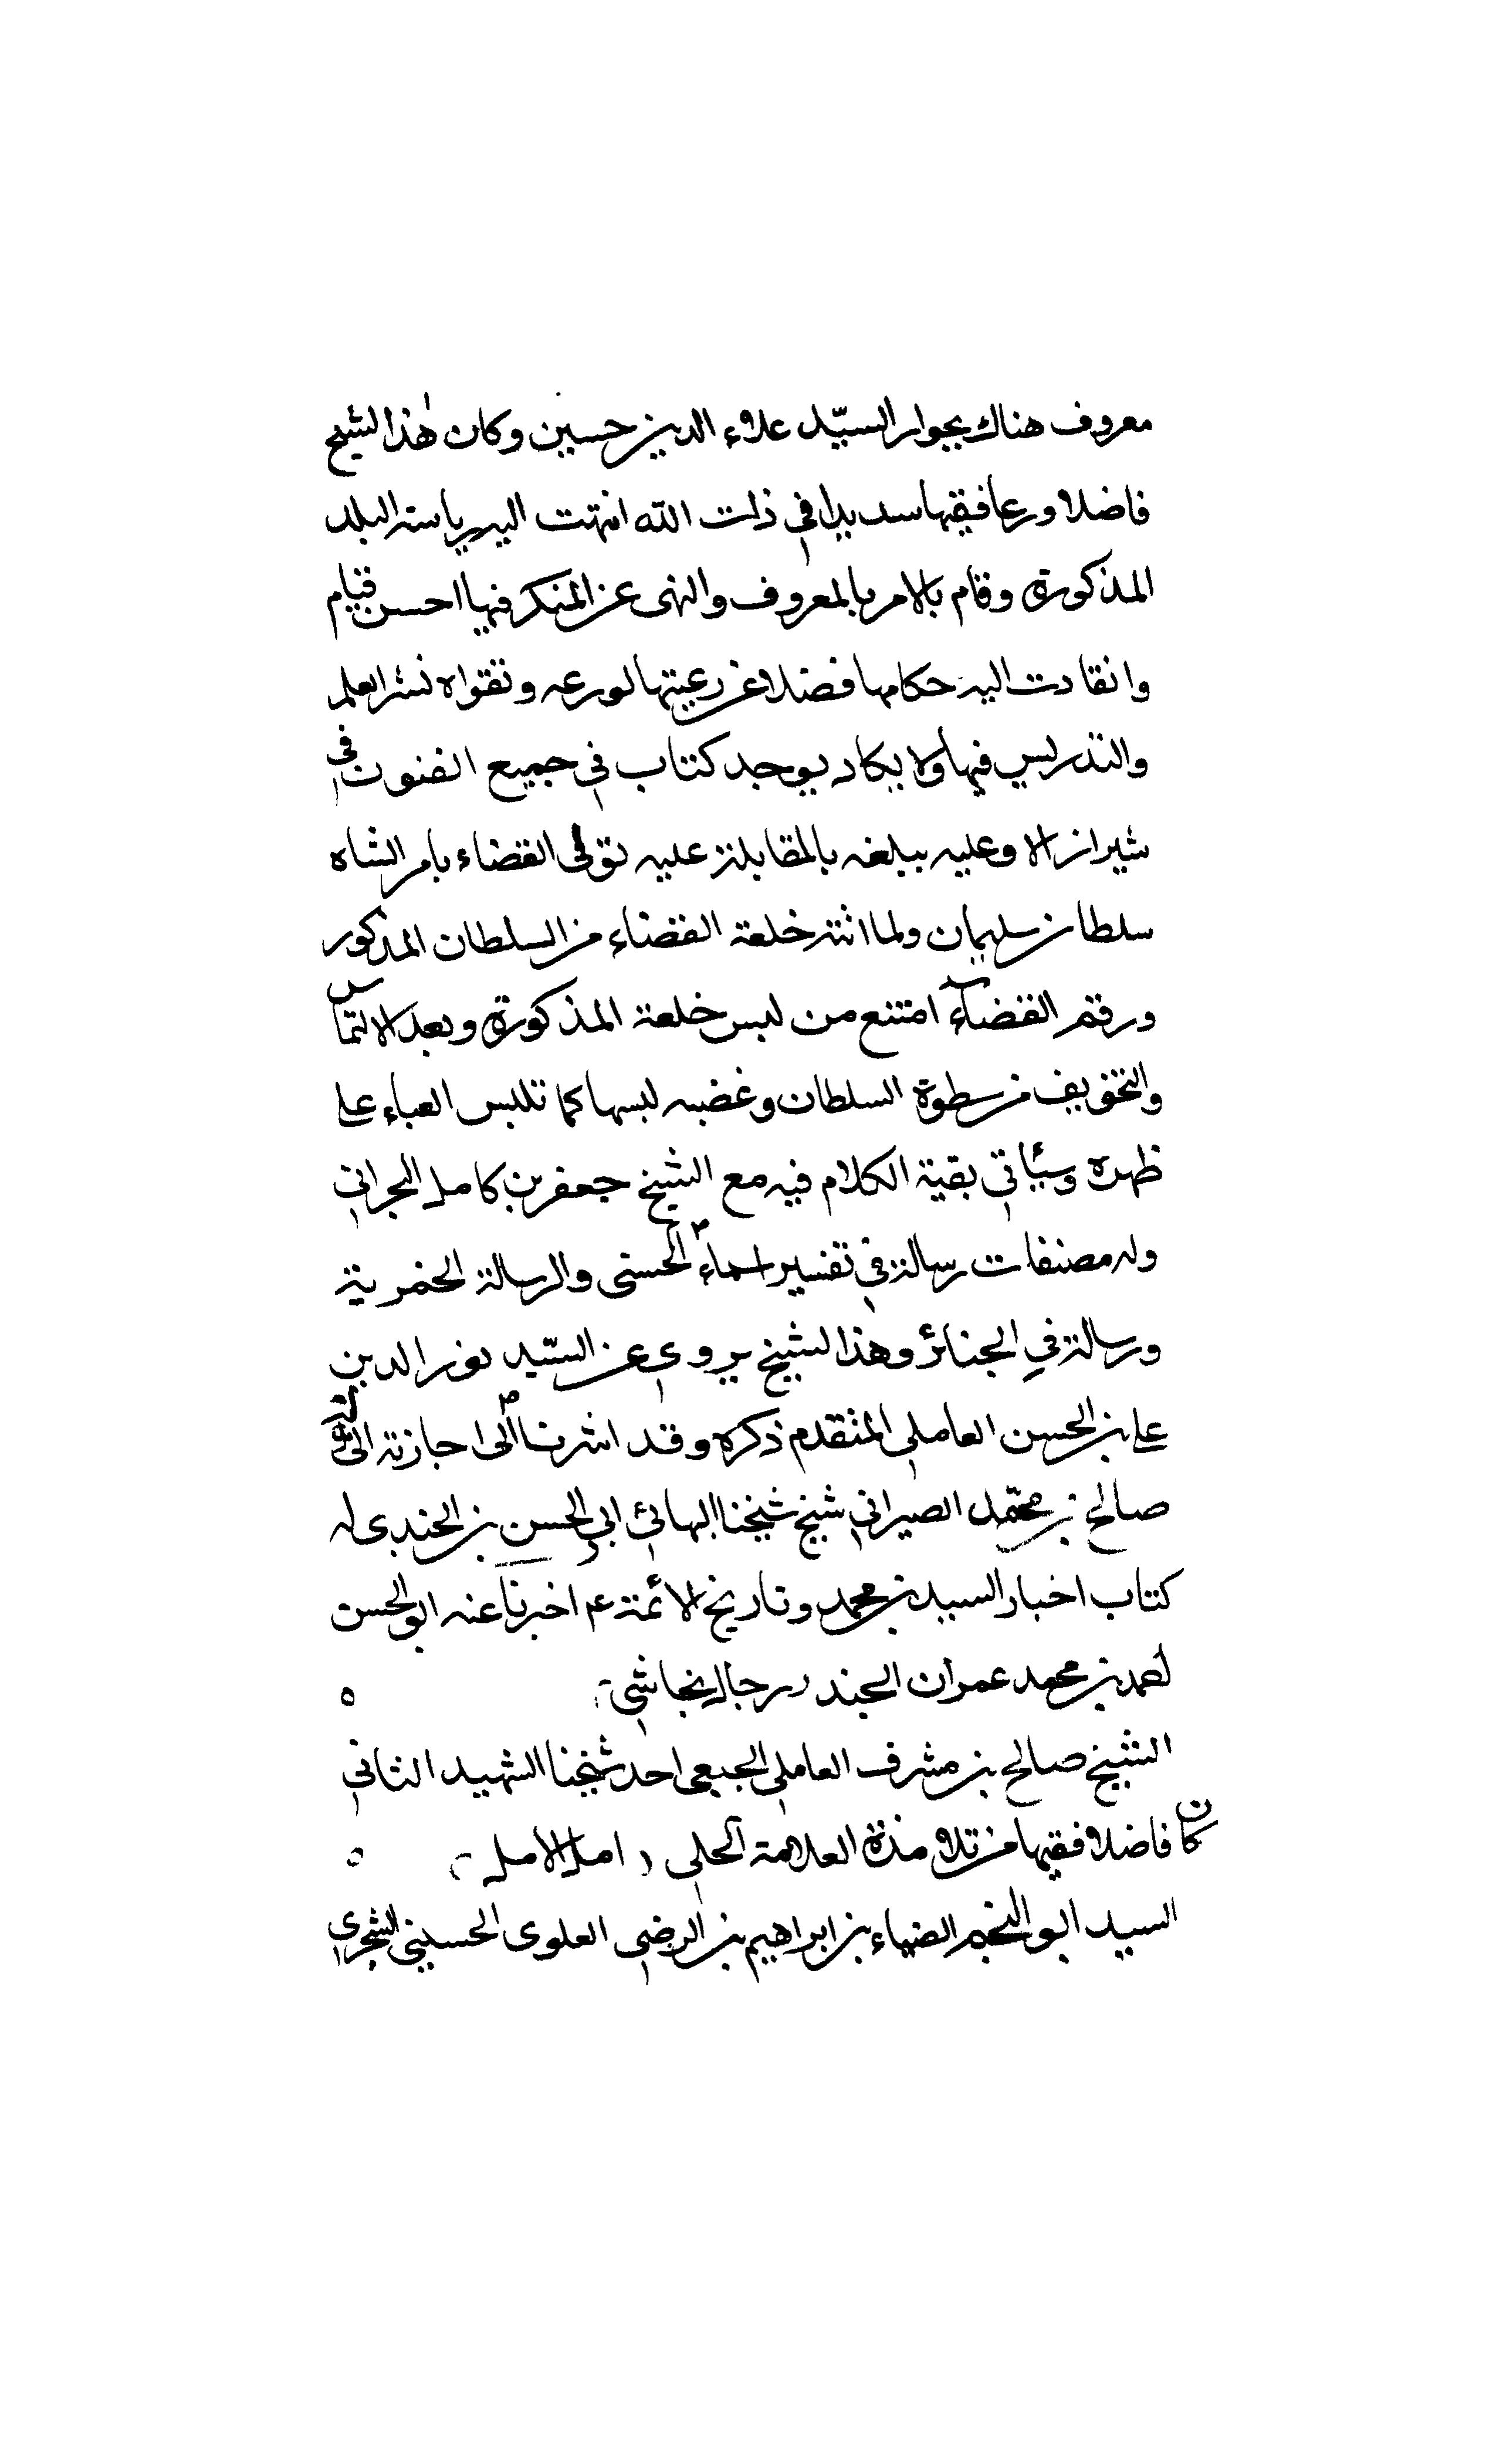 معروف هناك بجوار السيّد علاء الدين حسين وكان هذا الشيخ
فاضلا ورعا فقيها سديدا في ذات الله انتهت اليه رياسة البلد
المذكورة وقام بالامر بالمعروف والنهى عن المنكر فيها احسن قيام
وانقادت اليه حكامها فضلا عن رعيتها لورعه وتقواه نشر العلم
والتدريس فيها ولا يكاد يوجد كتاب في جميع الفنون في
شيراز الا وعليه ببلغه بالمقابلة عليه تولى القضاء بامر الشاه
سلطان سليمان ولما اتته خلعة القضاء من السلطان المذكور
ورقم القضاء امتنع من لبس خلعة المذكورة وبعد الالتماس
والتخويف من سطوة السلطان وغضبه لبسها كما تلبس العباء على
ظهره وسيأتي بقية الكلام فيه مع الشيخ جعفر بن كامل البحراني
وله مصنفات رسالة في تفسير اسماء الحسنى والرسالة الخمرية
ورسالة في الجنائز وهذا الشيخ يروى عن السيّد نور الدين
علي بن الحسن العاملي المتقدم ذكره وقد اشرنا الى اجازته الى
صالح بن محمد الصيراني شيخ شيخنا البهائي ابي الحسن بن الجندى له
كتاب اخبار السيد بن محمد وتاريخ الائمة ع اخبرنا عنه ابو الحسن
احمد بن محمد عمران الجند رجال نجاشي
الشيخ صالح بن مشرف العاملي الجبعي احد شيخنا الشهيد الثاني
كان فاضلا فقيها من تلامذة العلامة الحلي ( امل الامل )
السيد ابو النجم الضياء بن ابراهيم بن الرضي العلوى الحسيني الشجري